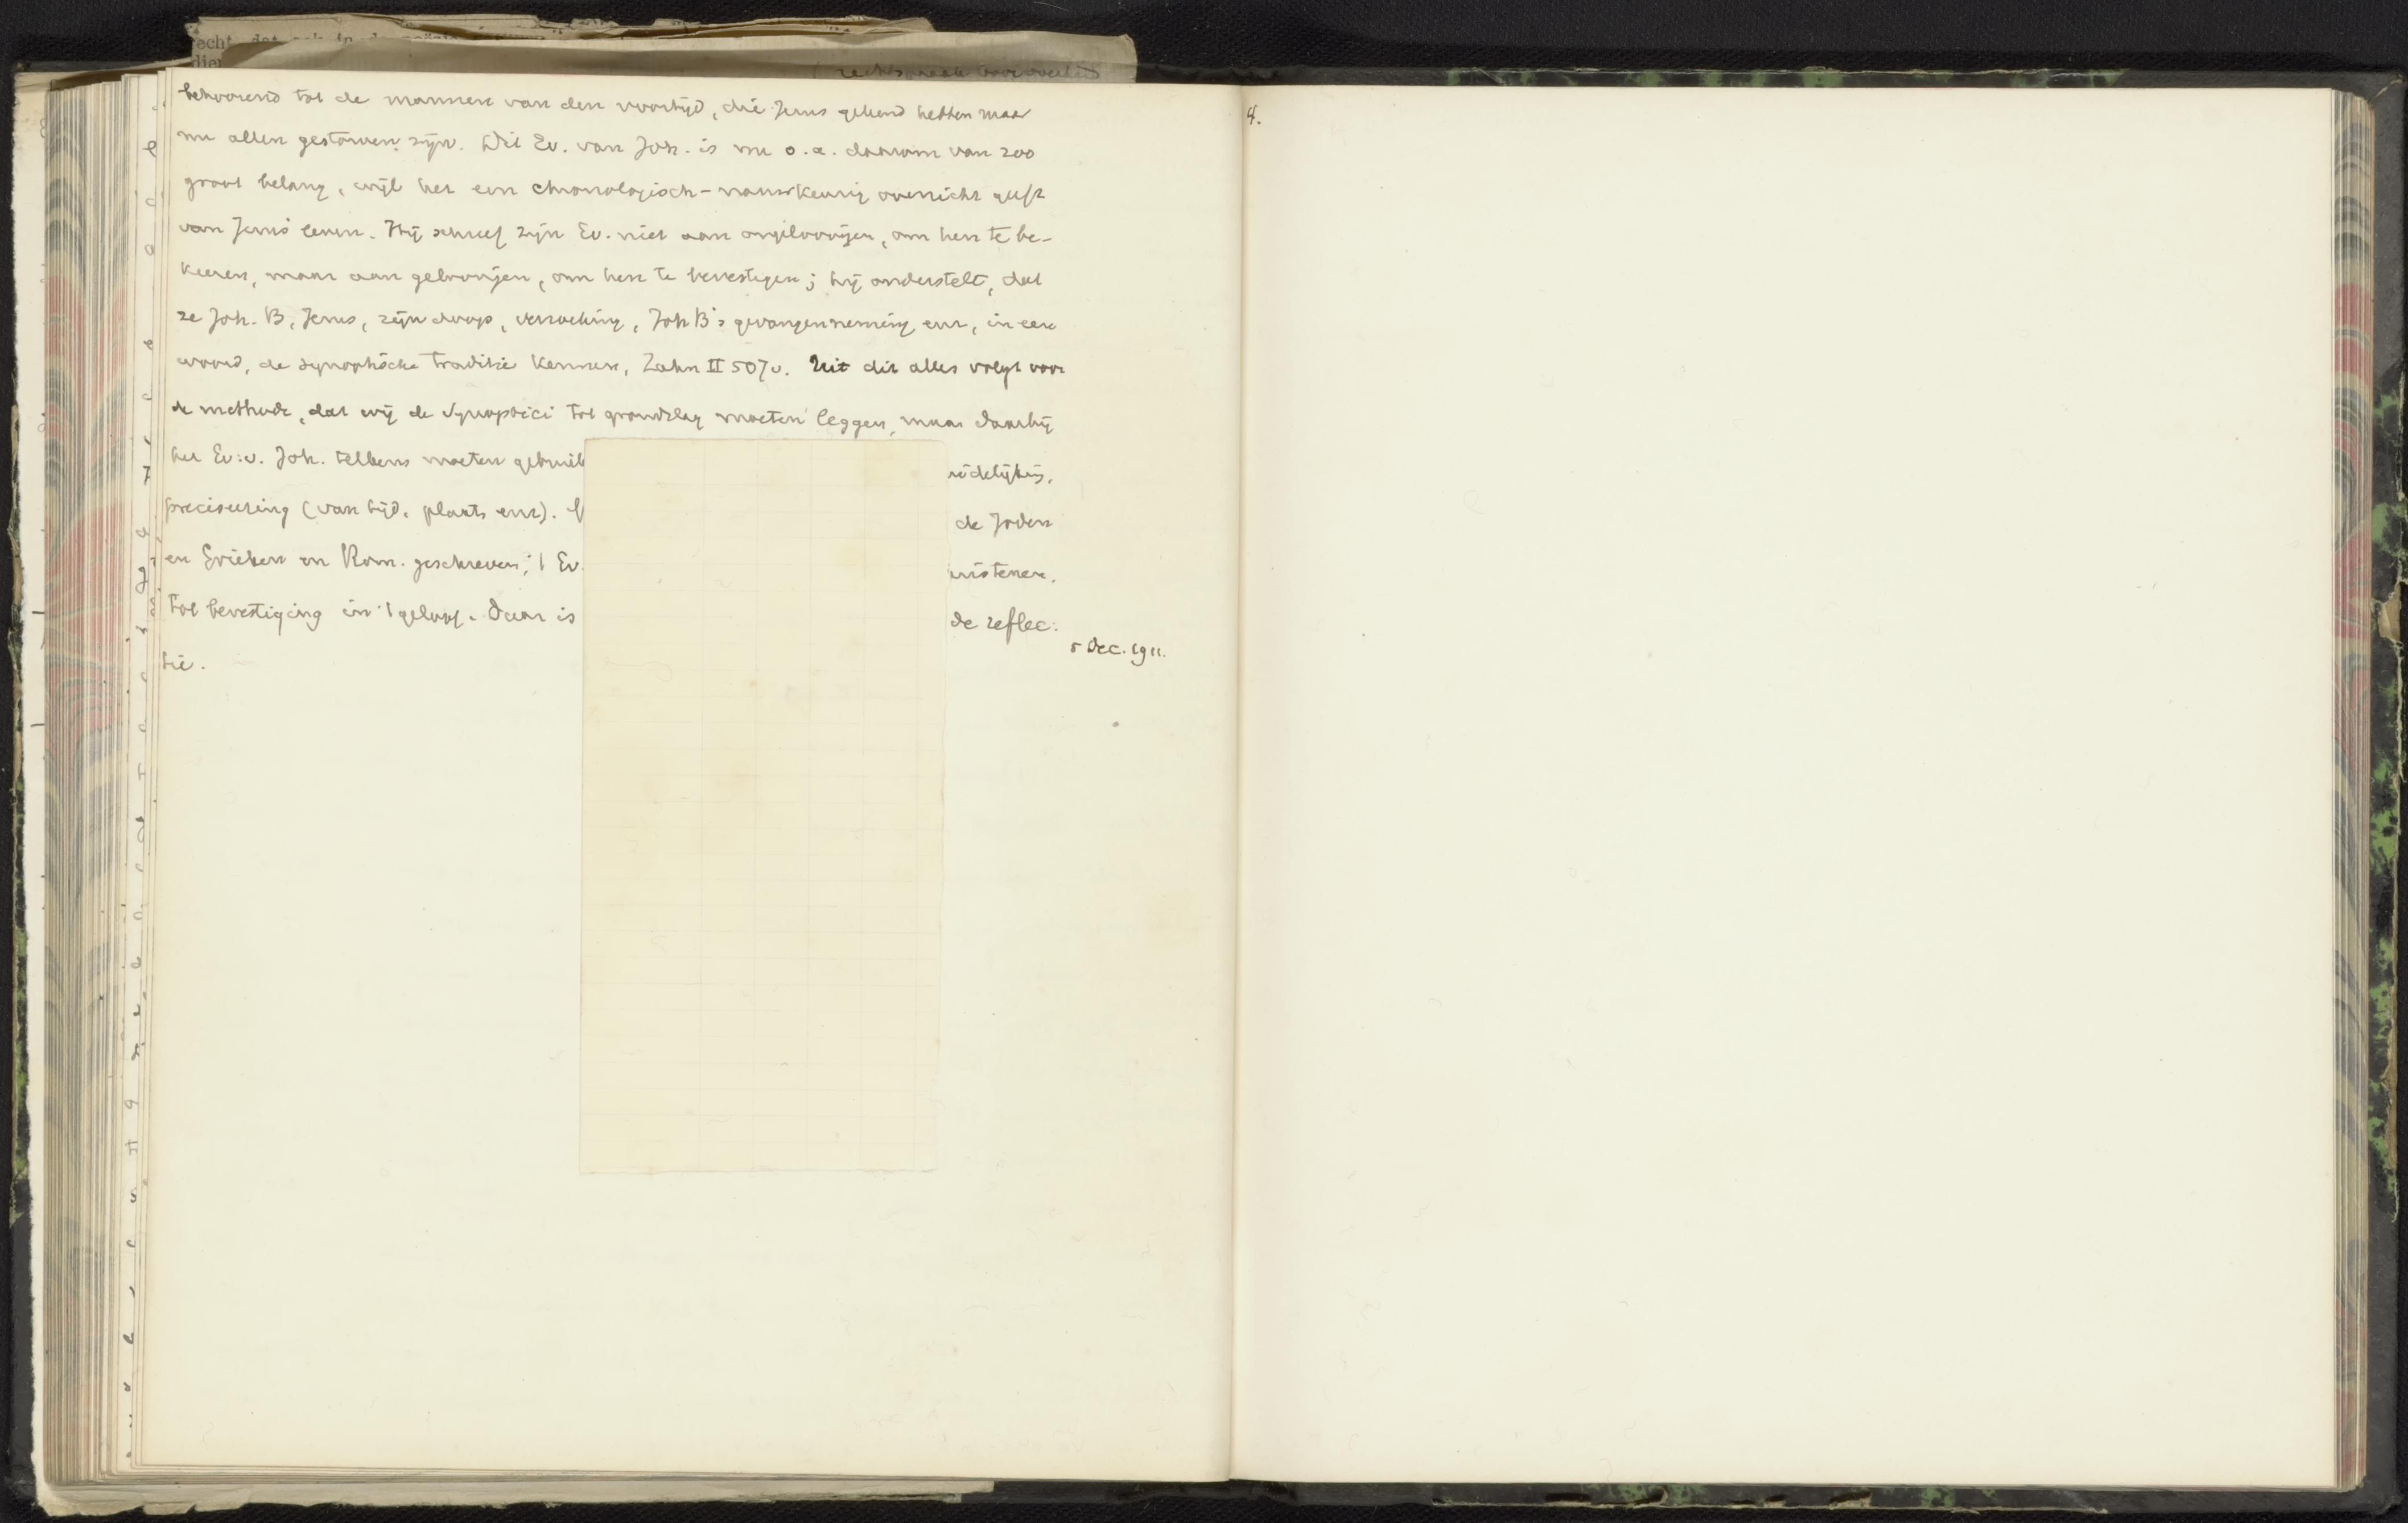 behoorend tot de mannen van den voortijd, die Jezus gekend hebben maar
nu allen gestorven zijn. Dit Ev. van Joh. is nu o.a. daarom van zoo
groot belang, wijl het een chronologisch-nauwkeurig overzicht geeft
van Jezus' leven. Hij schreef zijn Ev. niet aan ongeloovigen, om hen te be-
keeren, maar aan geloovigen, om hen te bevestigen; hij onderstelt, dat
ze Joh. B, Jezus, zijn doop, verzoeking, Joh B's gevangenneming enz, in een
woord, de synoptische traditie kennen, Zahn II 507v. Uit dit alles volgt voor
de methode, dat wij de Synoptici tot grondslag moeten leggen, maar daarbij
het Ev. v. Joh. telkens moeten gebruik
preciseering (van tijd, plaats enz). de Joden
en Grieken en Rom. geschreven; 't Ev. ristenen,
tot bevestiging in 't geloof. Daar is de reflec-
tie.
5 Dec. 1911.
4.